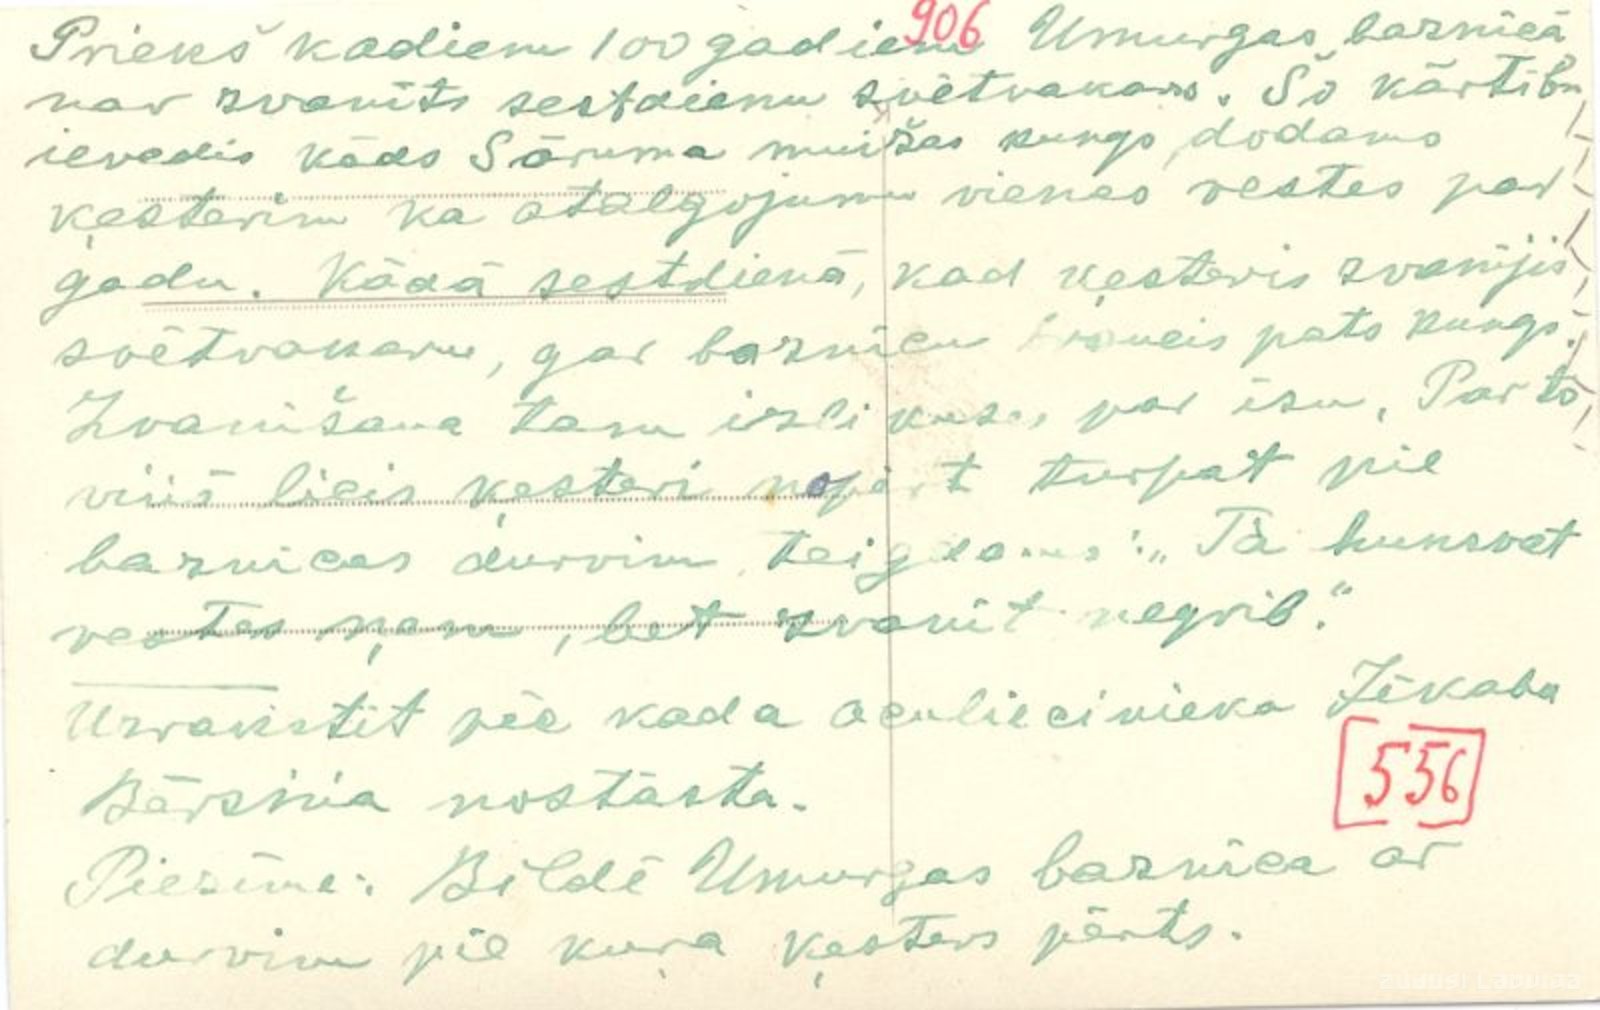 906
Priekš kādiem 100 gadiem Umurgas baznīcā
nav zvanīts sestdienu svētvakars. Šo kārtību
ievedis kāds Sāruma muižas kungs, dodams
ķesterim ka atalgojumu vienas vestes par
gadu. Kādā sestdienā, kad ķesteris zvanījis
svētvakaru, gar baznīcu braucis pats kungs.
Zvanīšana tam izlikusēs par īsu. Par to
viņš licis ķesteri nopērt turpat pie
baznīcas durvīm, teigdams: „Tā hunsvat
vestes ņem, bet zvanīt negrib."
Uzrakstīt pēc kada aculiecinieka Jēkaba
Bērziņa nostāsta.
556
Piezīme: Bildē Umurgas baznīca ar
durvīm pie kuŗa ķesters pērts.
zudusi Latvija